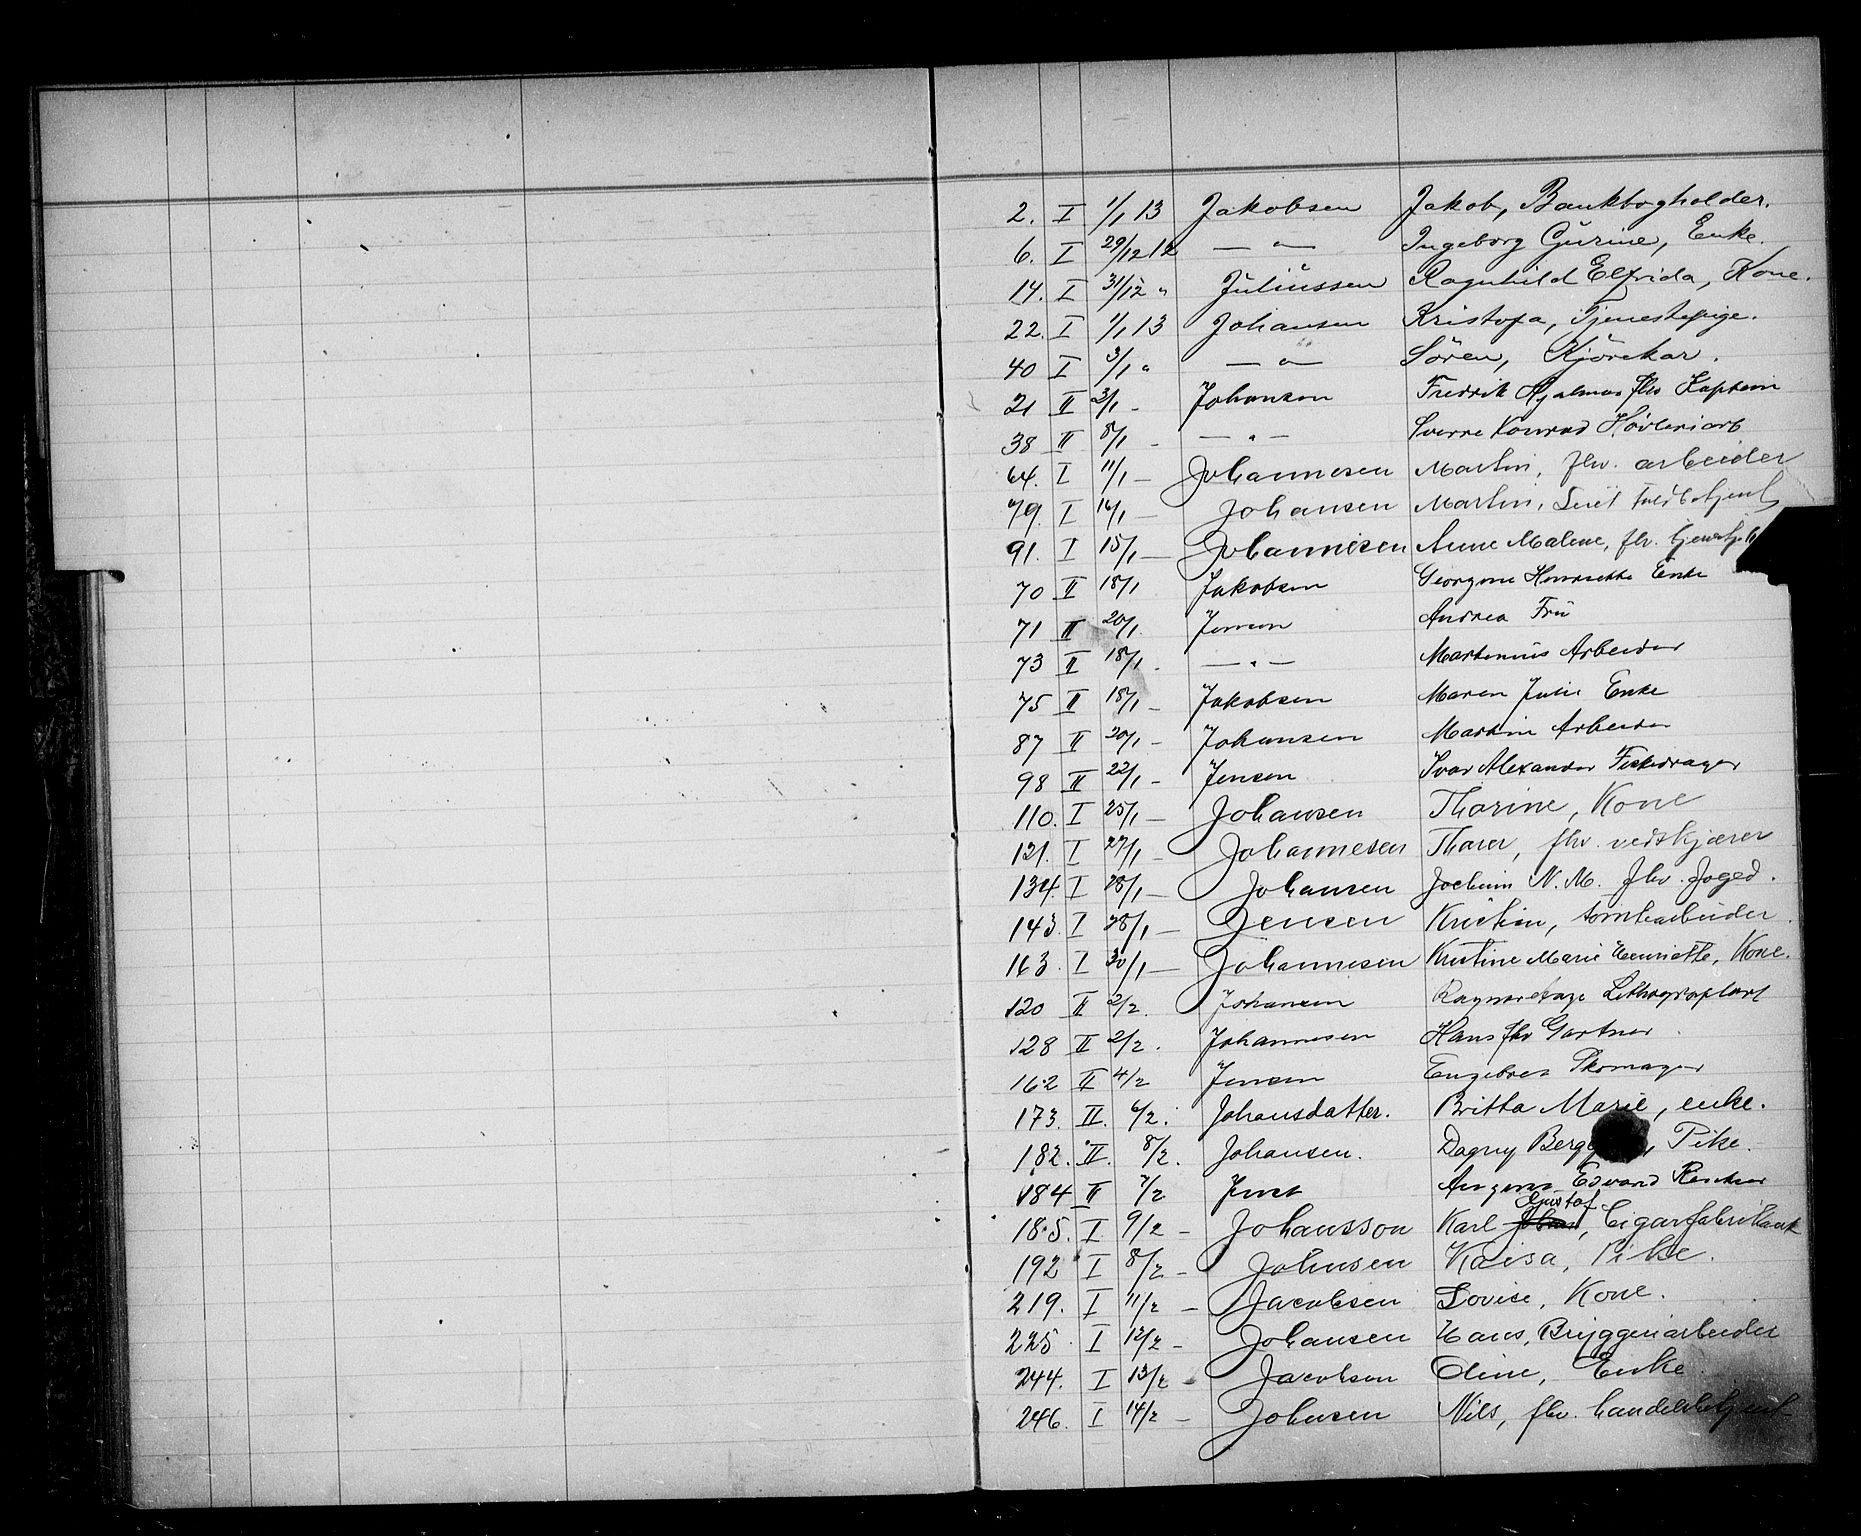 2. I 1/1 13 Jakobsen Jakob, Bankbogholder.
6. I 29/12 12 — " — Ingeborg Gurine, Enke.
14. I 31/12 " Juliussen Ragnhild Elfrida, Kone.
22. I 1/1 13 Johansen Kristofa, Tjenestepige.
40 I 3/1 " — " — Sören, Kjörekar.
21 II 3/1 - Johansen Fredrik Hjalmar fhv Kaptein
38 II 8/1 - — " — Sverre Konrad Høvleriarb
64. I 11/1 — Johannesen Martin, fhv. arbeider
79. I 16/1 — Johansen Martin, Toldbetjent
91. I 15/1 — Johannesen Anne Malene, fhv.
70 II 18/1 Jakobsen Georgine Henriette Enke
71 II 20/1. Jensen Andrea Frü
73 II 18/1 . — " — Martinius Arbeider
75 II 18/1 — Jakobsen Maren Julie Enke
87 II 20/1 — Johansen Martin Arbeider
98 II 22/1 — Jensen Ivar Alexander Feskedrager
110. I 25/1 — Johansen Thorine, Kone
121. I 27/1 — Johannesen Thorer, fhv. vedskjærer
134. I 28/1 — Johansen Jochim N. M. fhv. foged.
143. I 28/1 — Jensen Kristian, tomtearbeider.
163. I 30/1 — Johannesen Kristine Marie Henriette, Kone.
120 II 2/2. Johansen Ragnar
128 II 2/2 . Johannesen Hans fhv Gartner
162 II 4/2 Jensen Engebret Skomager
173. II. 6/2. Johansdatter. Britta Marie, enke.
182. II. 8/2. Johansen. Dagny Pike.
184 II 7/2 Edvard
185. I 9/2 - Johansson Karl Gustaf, Cigarfabrikant
192 I 8/2 - Johnsen Kaisa, Pike.
219. I 11/2 — Jacobsen Lovise, Kone.
225 I 12/2 - Johansen Hans, Bryggeriarbeider
244. I 13/2 - Jacobsen Oline, Enke
246. I 14/2 — Johnsen Nils, fhv. handelsbetjent